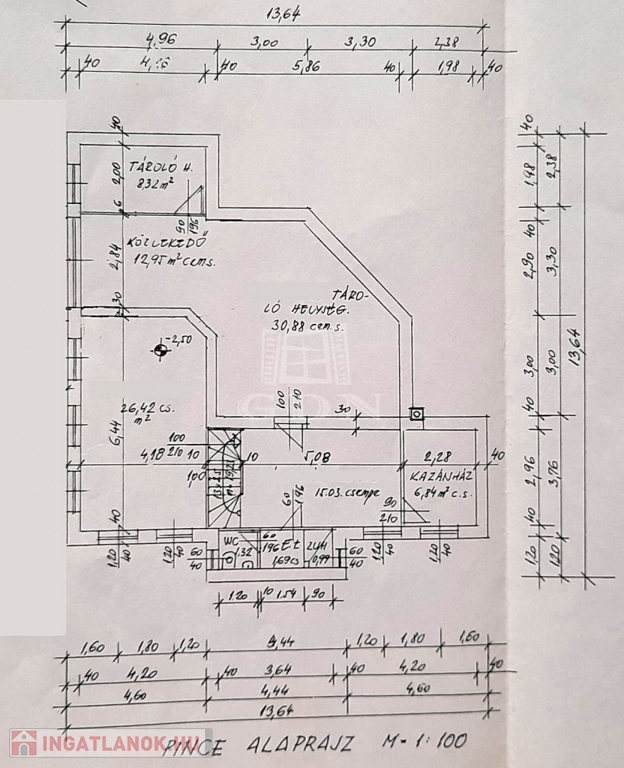 13,64
4,96 3,00 3,30 2,38
40 40 5,86 40 1,98 40
40
2,00
TÁROLÓ H.
8,32 m²
6
90
196
KÖZLEKEDŐ
12,95 m² cem.s.
2,84
30
TÁRO-
LÓ HELYISÉG.
30,88 cem.s.
-2,50
GDN
26,42 cs.
m²
6,44
100
210
30
100
210 10
4,18
10
5,08
2,28
40
100
KAZÁNHÁZ
6,84 m² c.s.
15.03. csempe
60
196
90
210
40
1,20
40
1,20
40
60
40
WC
1,32
60
196
Et
1,69 cs
ZUH
0,99
60
40
1,20
40
1,20
40
1,20 10 1.54 90
40
1,98 2,38
40
2,90 3,30
3,00 3,00
13,64
40
2,96 3,76
40
1,20 1,20
1,60 1,80 1,20 4,44 1,20 1,80 1,60
40 4,20 40 3,64 40 4,20 40
4,60 4,44 4,60
13,64
PINCE ALAPRAJZ M-1:100
INGATLANOK.HU